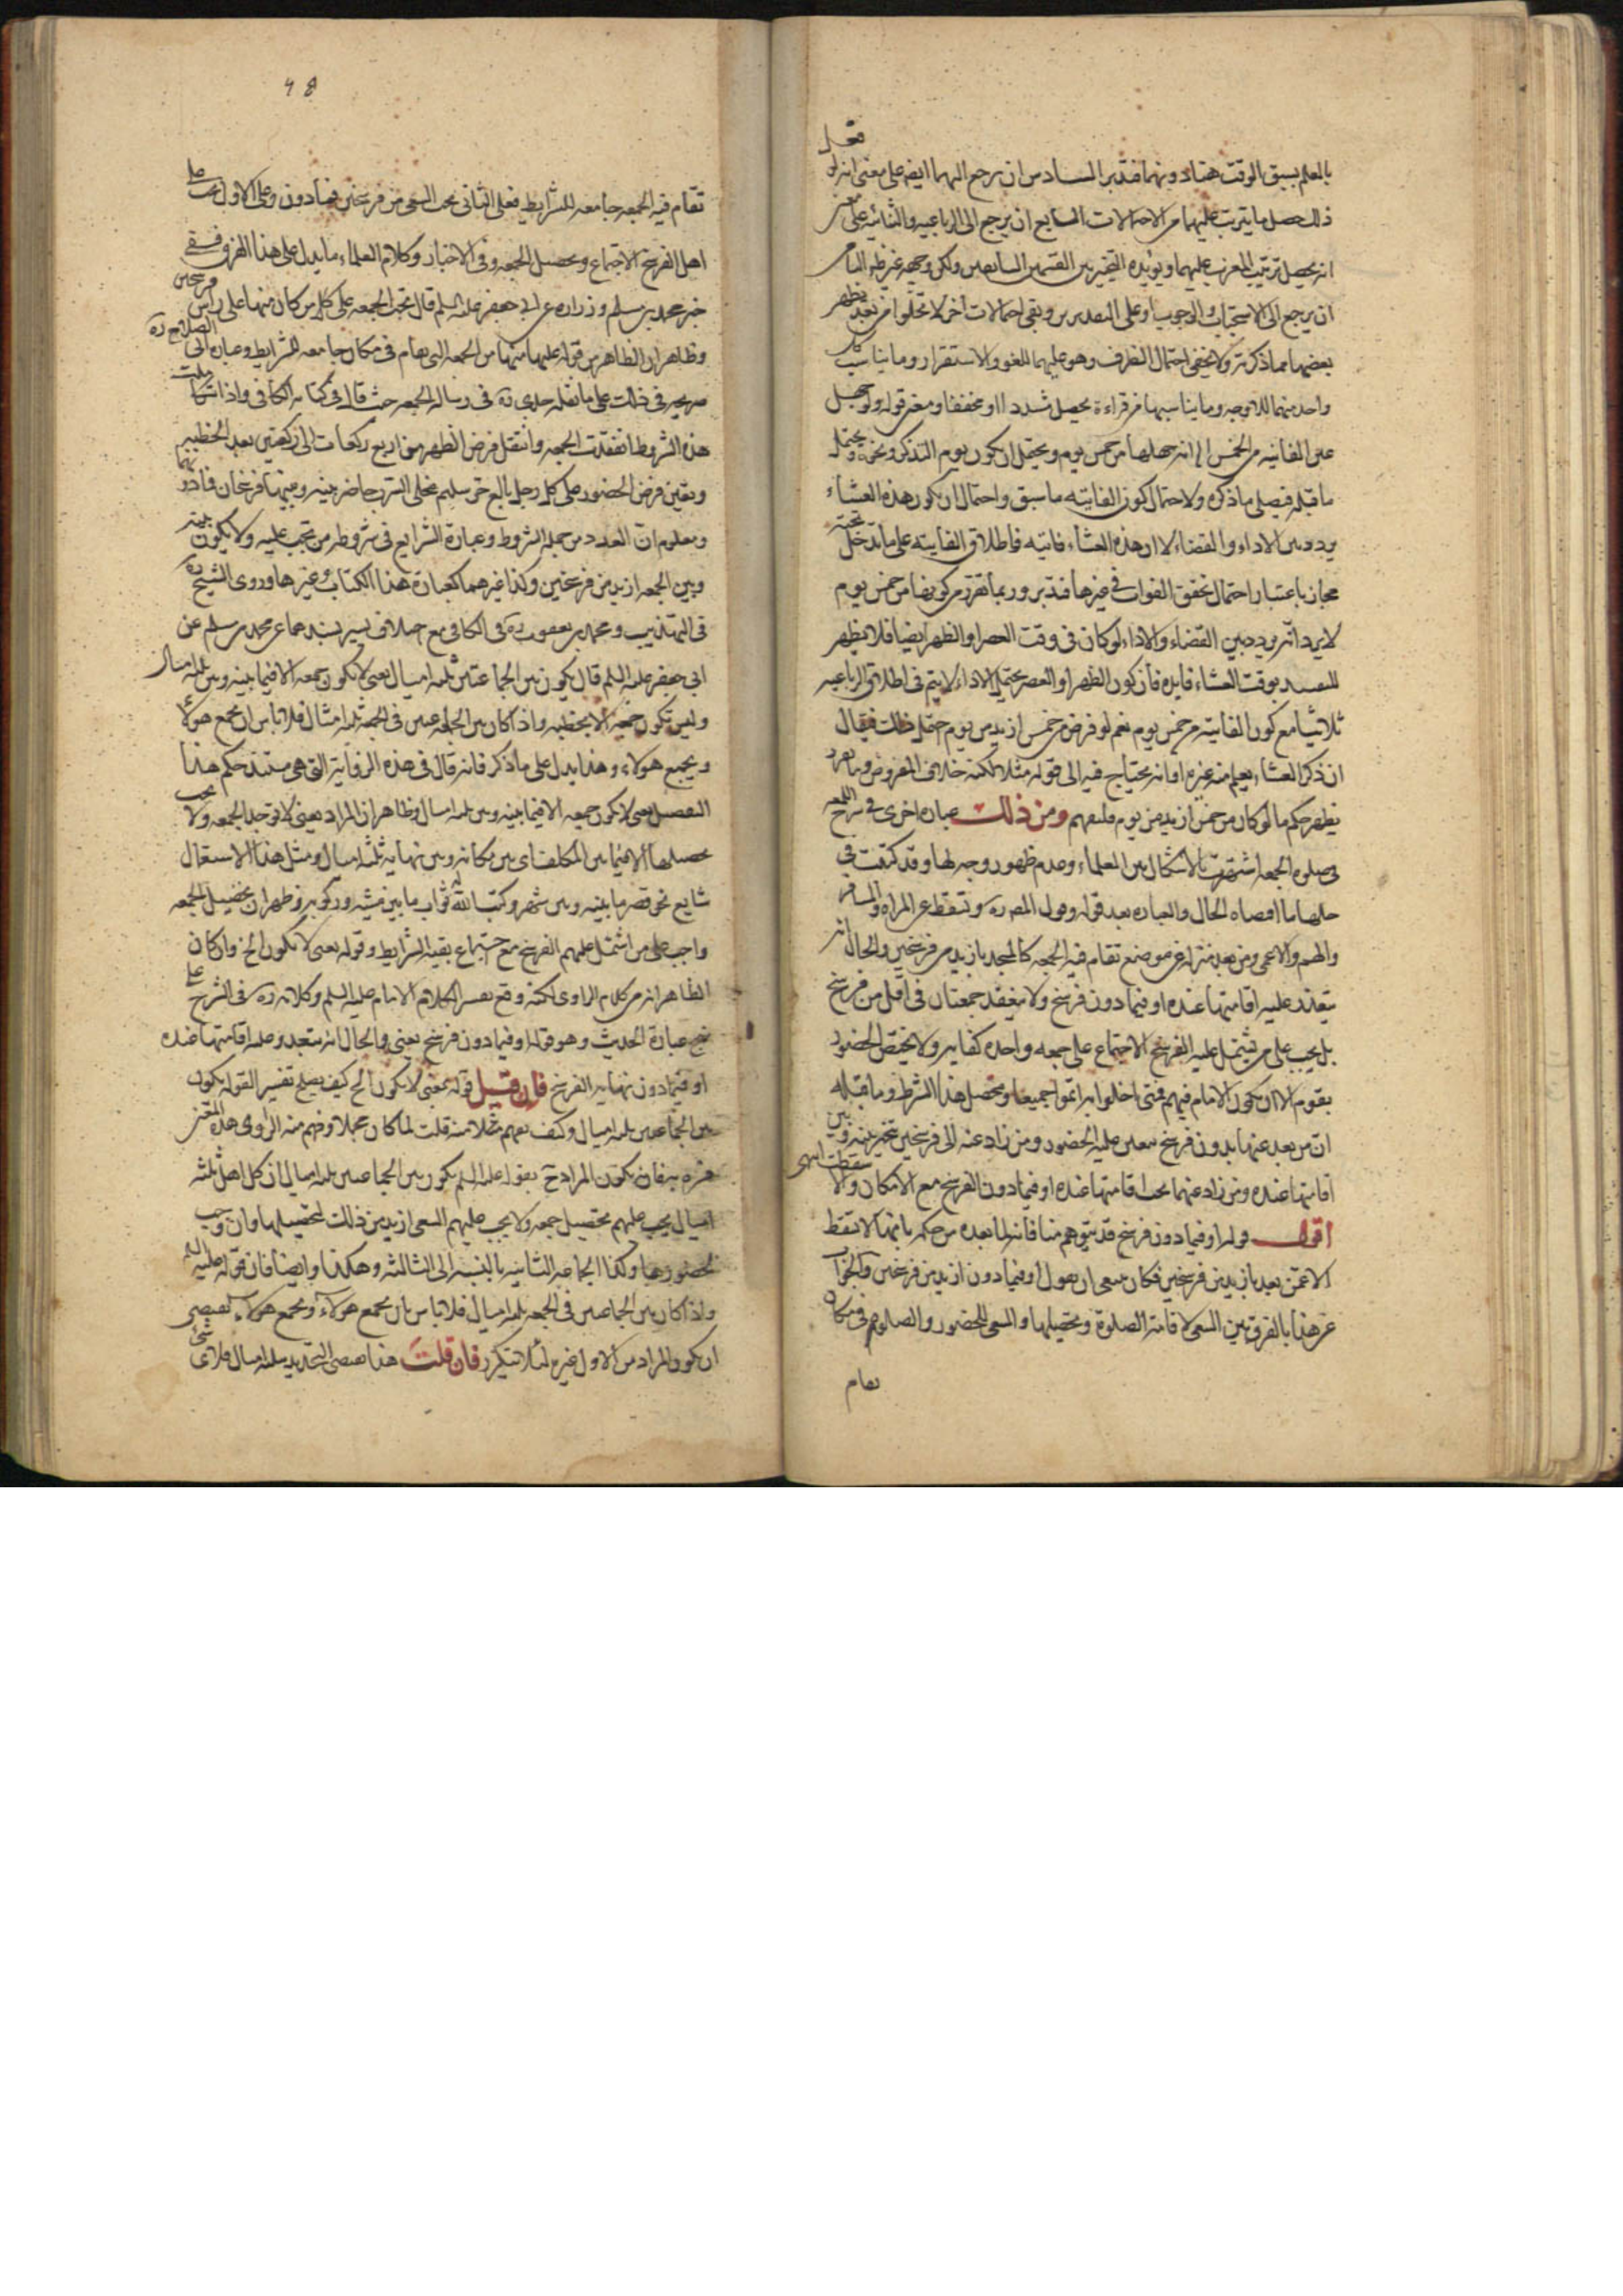 بالعلم بسبق الوقت هنا دونهما فتدبر السادس ان يرجع اليهما ايضا على معنى انه لو
ذلك حصل ما يترتب عليهما من الاحتمالات السابع ان يرجع الى الرباعيه والثنائيه على
انه يحصل ترتيب المغرب عليهما ويؤيده التخيير بين القسمين السابقين ولكن وجهه غير ظاهر الثامن
ان يرجع الى الاستحباب والوجوب او على التقديرين وبقى احتمالات اخر لا تخلوا من بعد يظهر
بعضها مما ذكرته ولا يخفى احتمال الظرف وهو عليهما للغو والاستقرار وما يناسب كل
واحد منهما للاوجه وما يناسبها من قراءة يحصل مشددا او مخففا ومعنى قوله ولو جهل
عين الفائته من الخمس الى انه جهلها من خمس يوم ويحتمل ان يكون يوم التذكر ونحوه ويحتمل
ما قبله فيصلى ما ذكره ولاحتمال كون الفائته ما سبق واحتمال ان يكون هذه العشاء
يردد بين الاداء والقضاء لا ان هذه العشاء فائته فاطلاق الفائته على ما تدخل تحته
مجاز باعتبار احتمال تحقق الفوات فى غيرها فتدبر وربما تقرر من كونها من خمس يوم
لا يرد انه يردد بين القضاء والاداء لو كان فى وقت العصر او الظهر ايضا فلا يظهر
للتقييد بوقت العشاء فايده فان كون الظهر او العصر يحتمل الاداء لا يتم فى اطلاق الرباعيه
ثلاثيا مع كون الفائته من خمس يوم نعم لو فرض من خمس ازيد من يوم احتمل ذلك فيقال
ان ذكر العشاء يعلم منه غيره او انه يحتاج فيه الى قوله مثلا لكنه خلاف المفروض وبما مر
يظهر حكم ما لو كان من خمس ازيد من يوم فليفهم ومن ذلك عباره اخرى فى شرح اللمعه
فى صلوة الجمعه اشتهرت بالاشكال بين العلماء وعدم ظهور وجه لها وقد كتبت فى
حلها ما اقتضاه الحال والعباره بعد قول المص ره وتسقط عن المراة والمسافر
والهم والاعمى ومن بعد منزله عن موضع تقام فيه الجمعه كالمسجد بازيد من فرسخين والحال انه
يتعذر عليه اقامتها عنده او فيما دون فرسخ ولا ينعقد جمعتان فى اقل من فرسخ
بل يجب على من يشتمل عليه الفرسخ الاجتماع على جمعه واحده كفايه ولا يختص الحضور
بقوم الا ان يكون الامام فيهم فمتى اخلوا به اثموا جميعا ومحصل هذا الشرط وما قبله
ان من بعد عنها بدون فرسخ يتعين عليه الحضور ومن زاد عنه الى فرسخين تخير بينه وبين
اقامتها عنده ومن زاد عنهما يجب اقامتها عنده او فيما دون الفرسخ مع الامكان والا سقطت انتهى
اقول قوله او فيما دون فرسخ قد يتوهم منافاته لما بعده من حكمه بانها لا تسقط
الا عمن بعد بازيد من فرسخين فكان ينبغى ان يقول او فيما دون ازيد من فرسخين والجواب
عن هذا بالفرق بين السعى لاقامة الصلوة وتحصيلها والسعى للحضور والصلوة فى مكان
تقام
تقام فيه الجمعه جامعه للشرايط فعلى الثانى يجب السعى من فرسخين فما دون وعلى الاول يجب على
اهل الفرسخ الاجتماع وتحصيل الجمعه وفى الاخبار وكلام العلماء ما يدل على هذا الفرق ففى
خبر محمد بن مسلم وزراره عن ابى جعفر عليه السلم قال تجب الجمعه على كل من كان منها على راس فرسخين
وظاهر ان الظاهر من قوله عليه السلم منها من الجمعه التى تقام فى مكان جامعه للشرايط وعباره ابى الصلاح ره
صريحه فى ذلك على ما نقله جدى ره فى رساله الجمعه حيث قال فى كتابه الكافى واذا تكاملت
هذه الشروط انعقدت الجمعه وانتقل فرض الظهر من اربع ركعات الى ركعتين بعد الخطبه
وتعين فرض الحضور على كل رجل بالغ حر سليم مخلى السرب حاضر بينه وبينها فرسخان فما دونهما
ومعلوم ان العدد من جملة الشروط وعبارة الشرايع فى شروط من تجب عليه ولا يكون بينه
وبين الجمعه ازيد من فرسخين وكذا غيرهما كعبارة هذا الكتاب وغيرها وروى الشيخ ره
فى التهذيب ومحمد بن يعقوب ره فى الكافى مع اختلاف يسير بسندهما عن محمد بن مسلم عن
ابى جعفر عليه السلم قال يكون بين الجماعتين ثلثه اميال يعنى لا يكون جمعه الا فيما بينه وبين ثلثه اميال
وليس تكون جمعه الا بخطبه واذا كان بين الجماعتين فى الجمعه ثلثه اميال فلا باس ان يجمع هؤلاء
ويجمع هولاء وهذا يدل على ما ذكر فانه قال فى هذه الرواية التى هى مستند حكم هذا
التفصيل يعنى لا يكون جمعه الا فيما بينه وبين ثلثه اميال وظاهر ان المراد يعنى لا توجد الجمعه ولا يجب
تحصيلها الا فيما بين المكلف اى بين مكانه وبين نهاية ثلثه اميال ومثل هذا الاستعمال
شايع نحو قصر ما بينه وبين شهر وكتب الله له ثواب ما بين مشيه وركوبه فظهر ان تحصيل الجمعه
واجب على من اشتمل عليهم الفرسخ مع اجتماع بقيه الشرايط وقوله يعنى لا يكون الخ وان كان
الظاهر انه من كلام الراوى لكنه وقع تفسيرا لكلام الامام عليه السلم وكلامه ره فى الشرح على
نهج عبارة الحديث وهو قوله او فيما دون فرسخ يعنى والحال انه يتعذر عليه اقامتها عنده
او فيما دون نهاية الفرسخ فان قيل قوله يعنى لا يكون الخ كيف يصلح تفسير القوله يكون
بين الجماعتين ثلثه اميال وكيف يفهم مثلا منه قلت لما كان مجملا وفهم منه الراوى هذا المعنى
فسره به فان يكون المراد ح بقوله عليه السلم يكون بين الجماعتين ثلثه اميال ان كل اهل ثلثه
اميال يجب عليهم تحصيل جمعه ولا يجب عليهم السعى ازيد من ذلك لتحصيلها وان وجب
لحضورها وكذا الجماعه الثانيه بالنسبه الى الثالثه وهكذا وايضا فان قوله عليه السلم
واذا كان بين الجماعتين فى الجمعه ثلثه اميال فلا باس بان يجمع هؤلاء ويجمع هؤلاء يقتضى
ان يكون المراد من الاول غيره لئلا يتكرر فان قلت هذا يقتضى التحديد بثلثه اميال فلاى شئ